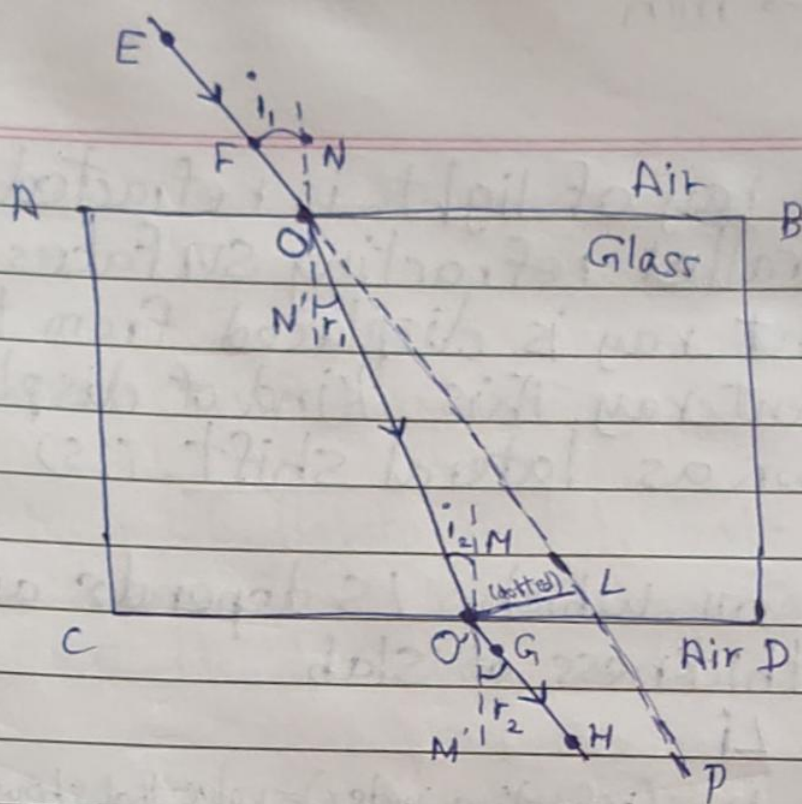 E
i₁
F N
A Air B
O Glass
N' r₁
i₂ M
(dotted) L
C O' G Air D
M' r₂ H
P